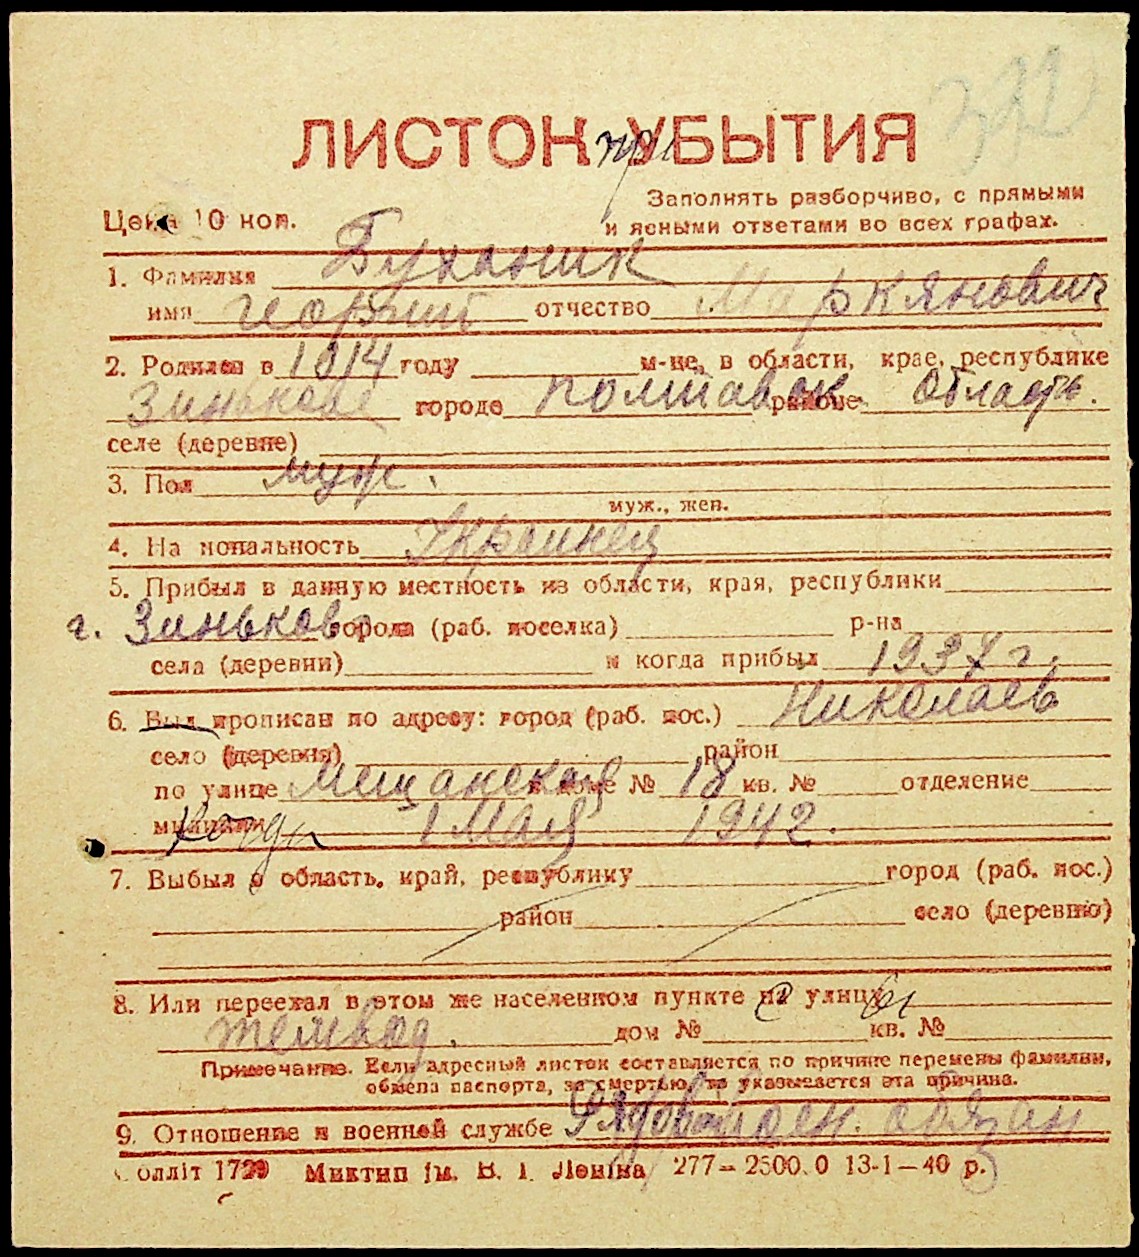 ЛИСТОК УБЫТИЯ
при
Цена 10 коп.
Заполнять разборчиво, с прямыми
и ясными ответами во всех графах.
1. Фамилия Буханик
имя Георгий отчество Маркянович
2. Родился в 1914 году м-це, в области, крае, республике
Зинькове городе Полтавск районе области.
селе (деревне)
3. Пол муж.
муж., жен.
4. Национальность Украинец
5. Прибыл в данную местность из области, края, республики
г. Зиньков города (раб. поселка) р-на
села (деревни) и когда прибыл 1937 г.
6. Был прописан по адресу: город (раб. пос.) Николаев
село (деревня) район
по улице Мещанская доме № 18 кв. № отделение
милиции 1 Мая 1942.
7. Выбыл в область, край, республику город (раб. пос.)
район село (деревню)
8. Или переехал в этом же населенном пункте на улицу
Темвод. дом № кв. №
Примечание. Если адресный листок составляется по причине перемены фамилии,
обмена паспорта, за смертью, то указывается эта причина.
9. Отношение к военной службе Рядовой воен. обязан
Оолліт 1729 Миктип ім. В. І. Леніна 277—2500.0 13-1—40 р.